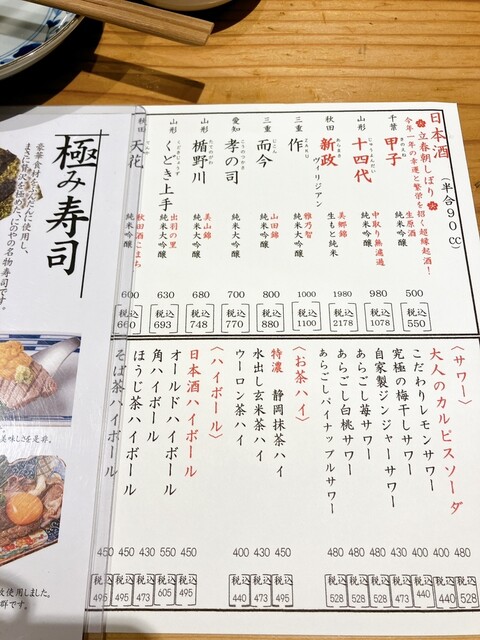 日本酒（半合90cc）
立春朝しぼり
今年一年の幸運と繁栄を招く超縁起酒！
千葉 甲子 きのえね 生原酒 純米吟醸 500 税込550
山形 十四代 じゅうよんだい 中取り無濾過 純米吟醸 980 税込1078
秋田 新政 あらまさ ヴィリジアン 美郷錦 生もと純米 1980 税込2178
三重 作 ざく 雅乃智 純米大吟醸 1000 税込1100
三重 而今 じこん 山田錦 純米吟醸 800 税込880
愛知 孝の司 こうのつかさ 純米大吟醸 700 税込770
山形 楯野川 たてのかわ 美山錦 純米大吟醸 680 税込748
山形 くどき上手 くどきじょうず 出羽の里 純米吟醸 630 税込693
秋田 天花 秋田酒こまち 純米吟醸 600 税込660
〈サワー〉
大人のカルピスソーダ 480 税込528
こだわりレモンサワー 400 税込440
究極の梅干しサワー 400 税込440
自家製ジンジャーサワー 430 税込473
あらごし苺サワー 480 税込528
あらごし白桃サワー 480 税込528
あらごしパイナップルサワー 480 税込528
〈お茶ハイ〉
特濃 静岡抹茶ハイ 450 税込495
水出し玄米茶ハイ 430 税込473
ウーロン茶ハイ 400 税込440
〈ハイボール〉
日本酒ハイボール 450 税込495
オールドハイボール 550 税込605
角ハイボール 430 税込473
ほうじ茶ハイボール 450 税込495
そば茶ハイボール 450 税込495
極み寿司
豪華食材をふんだんに使用し、
まさに贅沢を極めた、にのやの名物寿司です。
美味しさを是非。
使用しました。
群です。